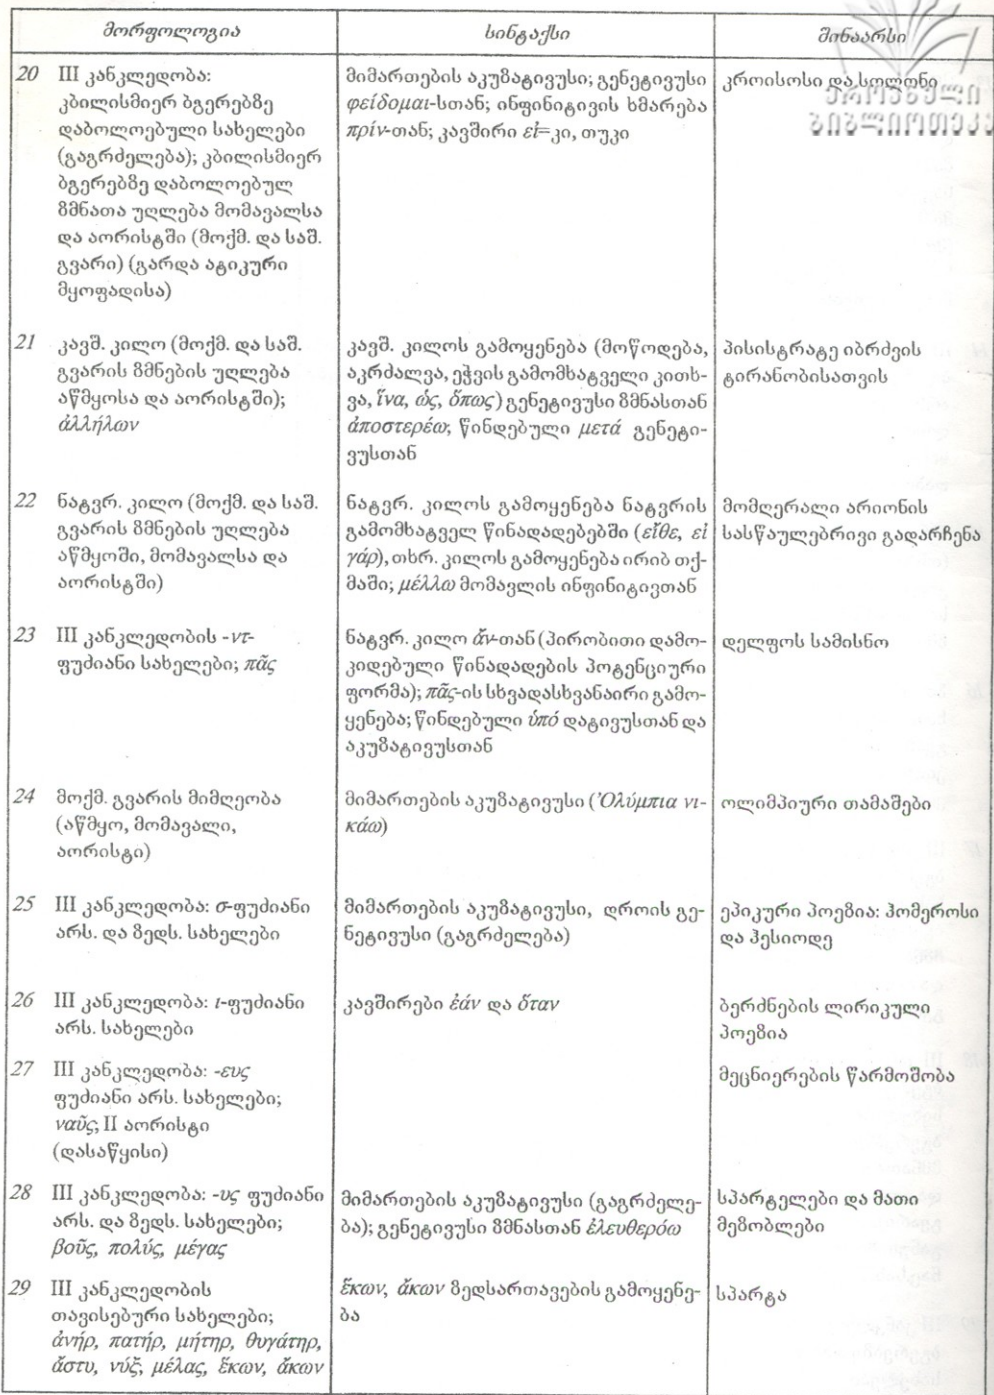 მორფოლოგია
სინტაქსი
შინაარსი
20 III კანკლედობა:
კბილისმიერ ბგერებზე
დაბოლოებული სახელები
(გაგრძელება); კბილისმიერ
ბგერებზე დაბოლოებულ
ზმნათა უღლება მომავალსა
და აორისტში (მოქმ. და საშ.
გვარი) (გარდა ატიკური
მყოფადისა)
მიმართების აკუზატივუსი; გენეტივუსი
φείδομαι-სთან; ინფინიტივის ხმარება
πρίν-თან; კავშირი εἰ=კი, თუკი
კროისოსი და სოლონი
21 კავშ. კილო (მოქმ. და საშ.
გვარის ზმნების უღლება
აწმყოსა და აორისტში);
ἀλλήλων
კავშ. კილოს გამოყენება (მოწოდება,
აკრძალვა, ეჭვის გამომხატველი კითხ-
ვა, ἵνα, ὡς, ὅπως) გენეტივუსი ზმნასთან
ἀποστερέω; წინდებული μετά გენეტი-
ვუსთან
პისისტრატე იბრძვის
ტირანობისათვის
22 ნატვრ. კილო (მოქმ. და საშ.
გვარის ზმნების უღლება
აწმყოში, მომავალსა და
აორისტში)
ნატვრ. კილოს გამოყენება ნატვრის
გამომხატველ წინადადებებში (εἴθε, εἰ
γάρ), თხრ. კილოს გამოყენება ირიბ თქ-
მაში; μέλλω მომავლის ინფინიტივთან
მომღერალი არიონის
სასწაულებრივი გადარჩენა
23 III კანკლედობის -ντ-
ფუძიანი სახელები; πᾶς
ნატვრ. კილო ἄν-თან (პირობითი დამო-
კიდებული წინადადების პოტენციური
ფორმა); πᾶς-ის სხვადასხვანაირი გამო-
ყენება; წინდებული ὑπό დატივუსთან და
აკუზატივუსთან
დელფოს სამისნო
24 მოქმ. გვარის მიმღეობა
(აწმყო, მომავალი,
აორისტი)
მიმართების აკუზატივუსი (Ὀλύμπια νι-
κάω)
ოლიმპიური თამაშები
25 III კანკლედობა: σ-ფუძიანი
არს. და ზედს. სახელები
მიმართების აკუზატივუსი, დროის გე-
ნეტივუსი (გაგრძელება)
ეპიკური პოეზია: ჰომეროსი
და ჰესიოდე
26 III კანკლედობა: ι-ფუძიანი
არს. სახელები
კავშირები ἐάν და ὅταν
ბერძნების ლირიკული
პოეზია
27 III კანკლედობა: -ευς
ფუძიანი არს. სახელები;
ναῦς; II აორისტი
(დასაწყისი)
მეცნიერების წარმოშობა
28 III კანკლედობა: -υς ფუძიანი
არს. და ზედს. სახელები;
βοῦς, πολύς, μέγας
მიმართების აკუზატივუსი (გაგრძელე-
ბა); გენეტივუსი ზმნასთან ἐλευθερόω
სპარტელები და მათი
მეზობლები
29 III კანკლედობის
თავისებური სახელები;
ἀνήρ, πατήρ, μήτηρ, θυγάτηρ,
ἄστυ, νύξ, μέλας, ἕκων, ἄκων
ἕκων, ἄκων ზედსართავების გამოყენე-
ბა
სპარტა